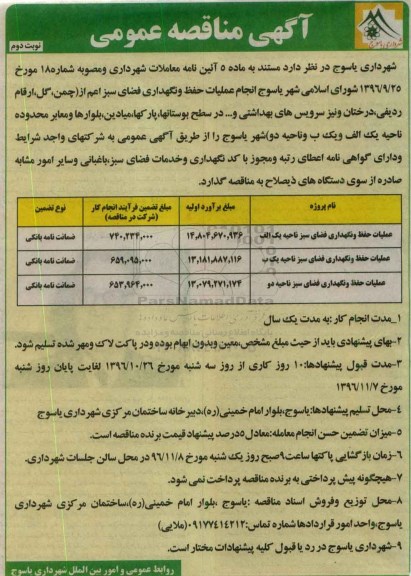 آگهی مناقصه عمومی
نوبت دوم
شهرداری یاسوج در نظر دارد مستند به ماده ۵ آئین نامه معاملات شهرداری ومصوبه شماره۱۸ مورخ
۱۳۹۶/۹/۲۵ شورای اسلامی شهر یاسوج انجام عملیات حفظ ونگهداری فضای سبز اعم از(چمن،گل،ارقام
ردیفی،درختان ونیز سرویس های بهداشتی و... در سطح بوستانها،پارکها،میادین،بلوارها ومعابر محدوده
ناحیه یک الف ویک ب وناحیه دو)شهر یاسوج را از طریق آگهی عمومی به شرکتهای واجد شرایط
ودارای گواهی نامه اعطای رتبه ومجوز با کد نگهداری وخدمات فضای سبز،باغبانی وسایر امور مشابه
صادره از سوی دستگاه های ذیصلاح به مناقصه گذارد.
نام پروژه مبلغ برآورد اولیه مبلغ تضمین فرآیند انجام کار (شرکت در مناقصه) نوع تضمین
عملیات حفظ ونگهداری فضای سبز ناحیه یک الف ۱۴,۸۰۴,۶۷۰,۹۳۶ ۷۴۰,۲۳۴,۰۰۰ ضمانت نامه بانکی
عملیات حفظ ونگهداری فضای سبز ناحیه یک ب ۱۳,۱۸۱,۸۸۷,۱۱۶ ۶۵۹,۰۹۵,۰۰۰ ضمانت نامه بانکی
عملیات حفظ ونگهداری فضای سبز ناحیه دو ۱۳,۰۷۹,۲۷۱,۱۷۴ ۶۵۳,۹۶۴,۰۰۰ ضمانت نامه بانکی
PARSNAMADDATA
۱_مدت انجام کار :به مدت یک سال
۲-بهای پیشنهادی باید از حیث مبلغ مشخص،معین وبدون ابهام بوده ودر پاکت لاک ومهر شده تسلیم شود.
۳-مدت قبول پیشنهادها:۱۰ روز کاری از روز سه شنبه مورخ ۱۳۹۶/۱۰/۲۶ لغایت پایان روز شنبه
مورخ ۱۳۹۶/۱۱/۷
۴-محل تسلیم پیشنهادها:یاسوج،بلوار امام خمینی(ره)،دبیرخانه ساختمان مرکزی شهرداری یاسوج
۵-میزان تضمین حسن انجام معامله:معادل۵درصد پیشنهاد قیمت برنده مناقصه است.
۶-زمان بازگشایی پاکتها ساعت۹صبح روز یک شنبه مورخ ۹۶/۱۱/۸ در محل سالن جلسات شهرداری.
۷-هیچگونه پیش پرداختی به برنده مناقصه پرداخت نمی شود.
۸-محل توزیع وفروش اسناد مناقصه :یاسوج ،بلوار امام خمینی(ره)،ساختمان مرکزی شهرداری
یاسوج،واحد امور قراردادها شماره تماس:۰۹۱۷۷۴۱۴۲۱۲(ملایی)
۹-شهرداری یاسوج در رد یا قبول کلیه پیشنهادات مختار است.
روابط عمومی و امور بین الملل شهرداری یاسوج